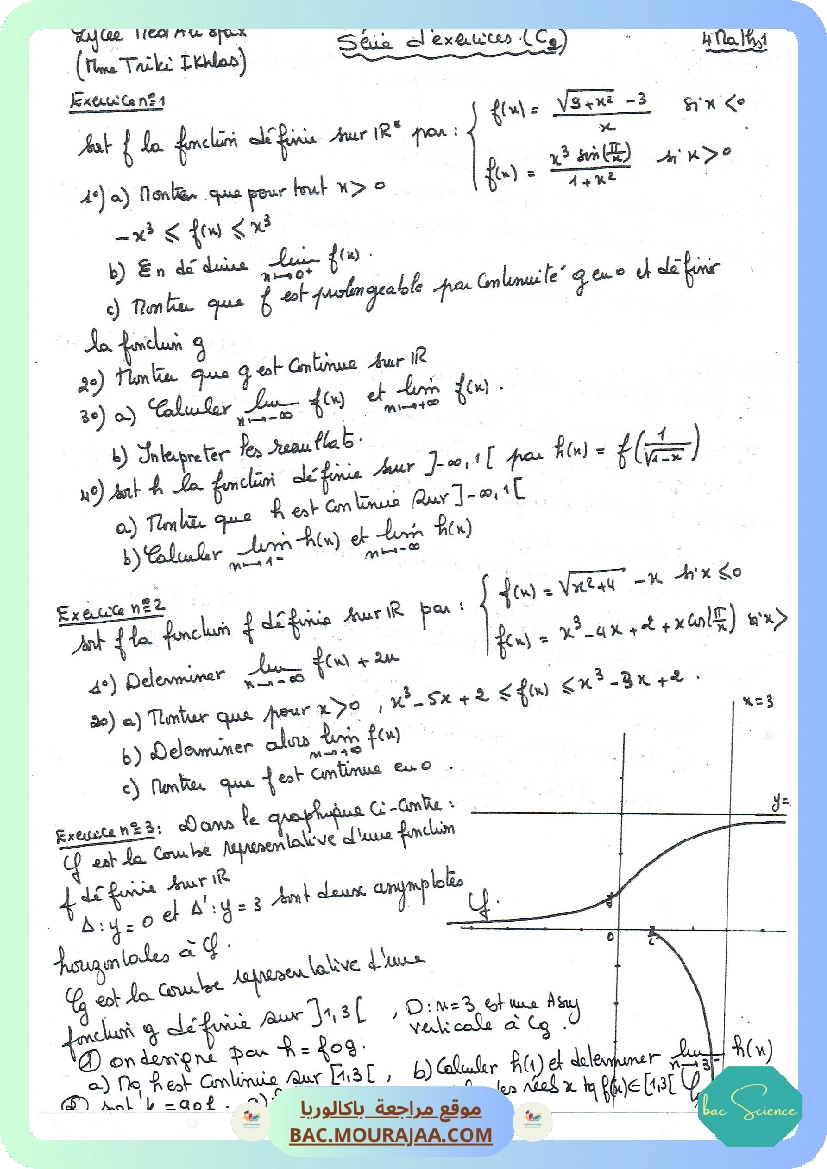 Série d'exercices (C2)
4 Maths1
(Mme Triki Ikhlas)
Exercice n°1
Soit f la fonction définie sur IR* par : { f(x) = (√(9+x²) - 3)/x si x < 0
f(x) = (x³ sin(π/x))/(1+x²) si x > 0
1°) a) Montrer que pour tout x > 0
-x³ ≤ f(x) ≤ x³
b) En déduire lim x→0⁺ f(x).
c) Montrer que f est prolongeable par continuité g en 0 et définir
la fonction g
2°) Montrer que g est continue sur IR
3°) a) Calculer lim x→-∞ f(x) et lim x→+∞ f(x).
b) Interpreter les resultats.
4°) soit h la fonction définie sur ]-∞,1[ par h(x) = f(1/√(1-x))
a) Montrer que h est continue sur ]-∞,1[
b) Calculer lim x→1⁻ h(x) et lim x→-∞ h(x)
Exercice n°2
soit f la fonction f définie sur IR par : { f(x) = √(x²+4) - x si x ≤ 0
f(x) = x³ - 4x + 2 + x cos(π/x) si x >
1°) Determiner lim x→-∞ f(x) + 2x
2°) a) Montrer que pour x > 0, x³ - 5x + 2 ≤ f(x) ≤ x³ - 3x + 2.
b) Determiner alors lim x→+∞ f(x)
c) Montrer que f est continue en 0.
x = 3
y =
Exercice n°3 : Dans le graphique ci-contre :
Cf est la courbe representative d'une fonction
f définie sur IR
Δ : y = 0 et Δ' : y = 3 sont deux asymptotes
horizontales à Cf.
Cf
0
Cg est la courbe representative d'une
fonction g définie sur ]1,3[, D : x = 3 est une Asy
verticale à Cg.
① on designe par h = fog.
a) Mq h est continue sur [1,3[, b) Calculer h(1) et determiner lim x→3⁻ h(x)
les réels x tq f(x) ∈ [1,3[
bac Science
موقع مراجعة باكالوريا
BAC.MOURAJAA.COM